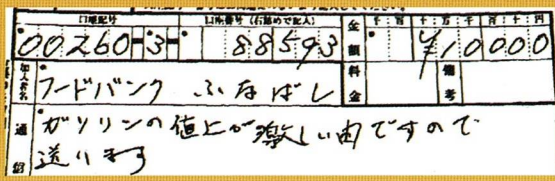 口座記号 口座番号(右詰めで記入) 金額 千 百 十 万 千 百 十 円
00260-3- 88593 ¥10000
加入者名 フードバンク ふなばし 料金 備考
通信 ガソリンの値上が激しい由ですので
送ります